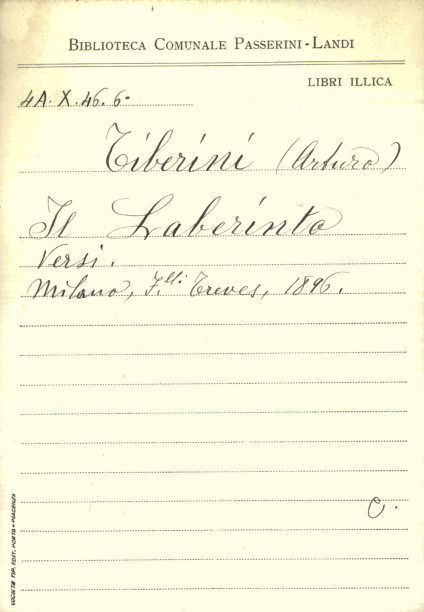 BIBLIOTECA COMUNALE PASSERINI-LANDI
LIBRI ILLICA
4A. X. 46. 6.
Tiberini (Arturo)
Il Laberinto
Versi.
Milano, F.lli Treves, 1896.
C.
SOCIETÀ TIP. EDIT. PORTA - PIACENZA